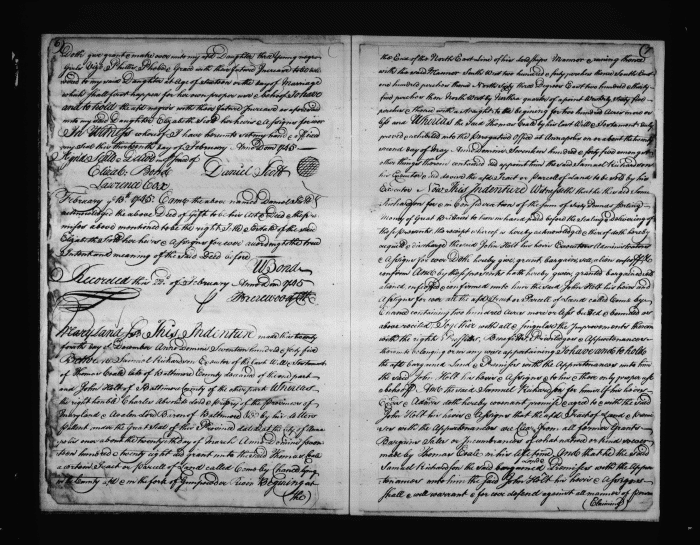 6
Doth give grant & make over unto my sd Daughter three Young negroe
Girls Phillis Phebe Grace with their future Increase to be
to my said Daughter at Age of or the day of Marriage
which shall first happen for her own proper use & behoof To have
and to hold the sd negroes with their future Increase as aforesaid
unto my said Daughter Elizabeth Scott her heirs & Assigns for ever
In Witness whereof I have hereunto set my hand & affixed
my Seal this thirteenth day of February Anno Dom 1745
Signed Seald & delivd in presence of
Elizab. Bond Daniel Scott
Lawrence Cox
February ye 13th 1745 Came the above named Daniel Scott &
acknowledged the above Deed of gift to be his Act & deed & the
above mentioned to be the right & Estate of the said
Elizabeth Scott her heirs & Assigns for ever according to the true
Intent and meaning of the said deed
W Bond
Recorded this 22d of February Anno Dom 1745
Maryland This Indenture made this twenty
fourth day of December Anno Domini Seventeen hundred & forty five
Between Samuel Richardson Executor of the last Will & Testament
of Thomas Coale late of Baltimore County deceased of the one part
and John Holt of Baltimore County of the other part Whereas
the right honble Charles Absolute Lord & of the Province of
Maryland & Avalon Lord Baron of Baltimore by his letters
Patent under the Great Seal of this Province dated at the City of Anna
polis on or about the twenty day of March Anno Domini seven
teen hundred & twenty did grant unto the said Thomas Coale
a certain Tract or Parcell of Land called Come by Chance lying
in the County afsd & in the fork of Gunpowder River Begining at
(the)
(7
the End of the North East line of his Lordships Mannor & runing thence
with the said Mannor South West two hundred & forty perches thence South East
one hundred perches thence North sixty three Degrees East two hundred & thirty
five perches then North West by North a quarter of a point Westerly sixty five
perches & thence with a straight to the begining for two hundred acres more or
less and Whereas the said Thomas Coale by his last Will & Testament duly
proved & exhibited into the Comissarys Office at Annapolis on or about the twenty
second day of May Anno Domini Seventeen hundred & forty five amongst
other things therein contained did appoint him the said Samuel Richardson
his Executor and devised the afsd Tract or Parcell of Land to be sold by his
Executor Now This Indenture Witnesseth that he the said Saml
Richardson for & in Consideration of the sum of sixty Pounds Sterling
Money of Great Britain to him in hand paid before the Sealing & delivering of
these presents the receipt whereof is hereby acknowledged & thereof doth hereby
acquit & discharge the said John Holt his heirs Executors Administrators
& Assigns for ever Doth hereby give, grant, bargain, sell, alien
confirm And by these presents hath hereby given, granted bargained sold
aliened, & confirmed unto him the said John Holt his heirs and
Assigns for ever all the afsd Tract or Parcell of Land called Come by
Chance containing two hundred Acres more or less butted & bounded as
above recited Together with all & singular the Improvements thereon
with the rights Profitts, Benefits, Priviledges & Appurtenances
thereunto belonging or any wise appertaining To have and to hold
the afsd bargained Land & Premises with the Appurtenances unto him
the said John Holt his heirs & Assigns & to his & there only proper use
& behoof And the said Samuel Richardson for himself his heirs
Exrs & Admrs doth hereby covenant promise & agree to & with the said
John Holt his heirs & Assigns that the afsd Tract of Land & premi
ses with the Appurtenances are clear from all former Grants
Bargains Sales or Incumbrances of what nature or kind soever
made by Thomas Coale in his life time And that he the said
Samuel Richardson the said bargained Premises with the Appur
tenances unto him the said John Holt his heirs & Assigns
shall & will warrant & for ever defend against all manner of persons
(Claiming)